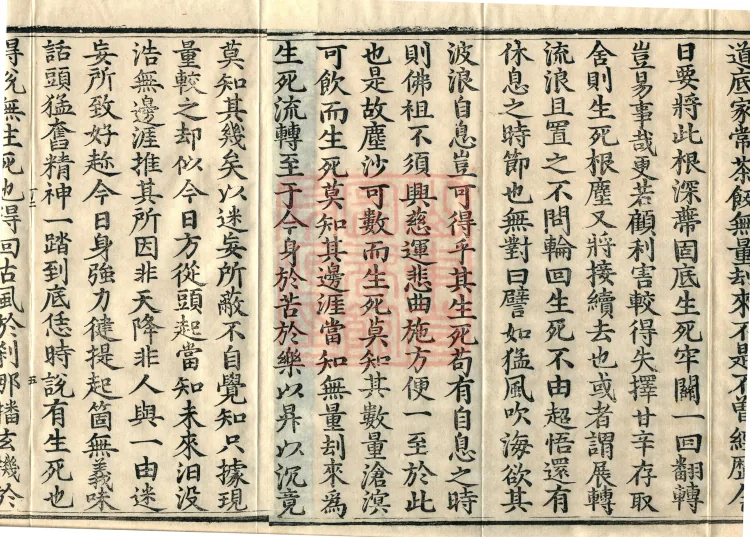 道底家常茶飯無量劫來不是不曾經歷今
日要將此根深蔕固底生死牢關一回翻轉
豈易事哉更若顧利害較得失擇甘辛存取
舍則生死根塵又將接續去也或者謂展轉
流浪且置之不問輪回生死不由超悟還有
休息之時節也無對曰譬如猛風吹海欲其
波浪自息豈可得乎其生死茍有自息之時
則佛祖不須興慈運悲曲施方便一至於此
也是故塵沙可數而生死莫知其數量滄溟
可飲而生死莫知其邊涯當知無量刦來為
生死流轉至于今身於苦於樂以昇以沉竟
莫知其幾矣以迷妄所蔽不自覺知只據現
量較之却似今日方從頭起當知未來汩沒
浩無邊涯推其所因非天降非人與一由迷
妄所致好趂今日身強力健提起箇無義味
話頭猛奮精神一踏到底恁時說有生死也
五
得說無生死也得回古風於剎那播玄機於